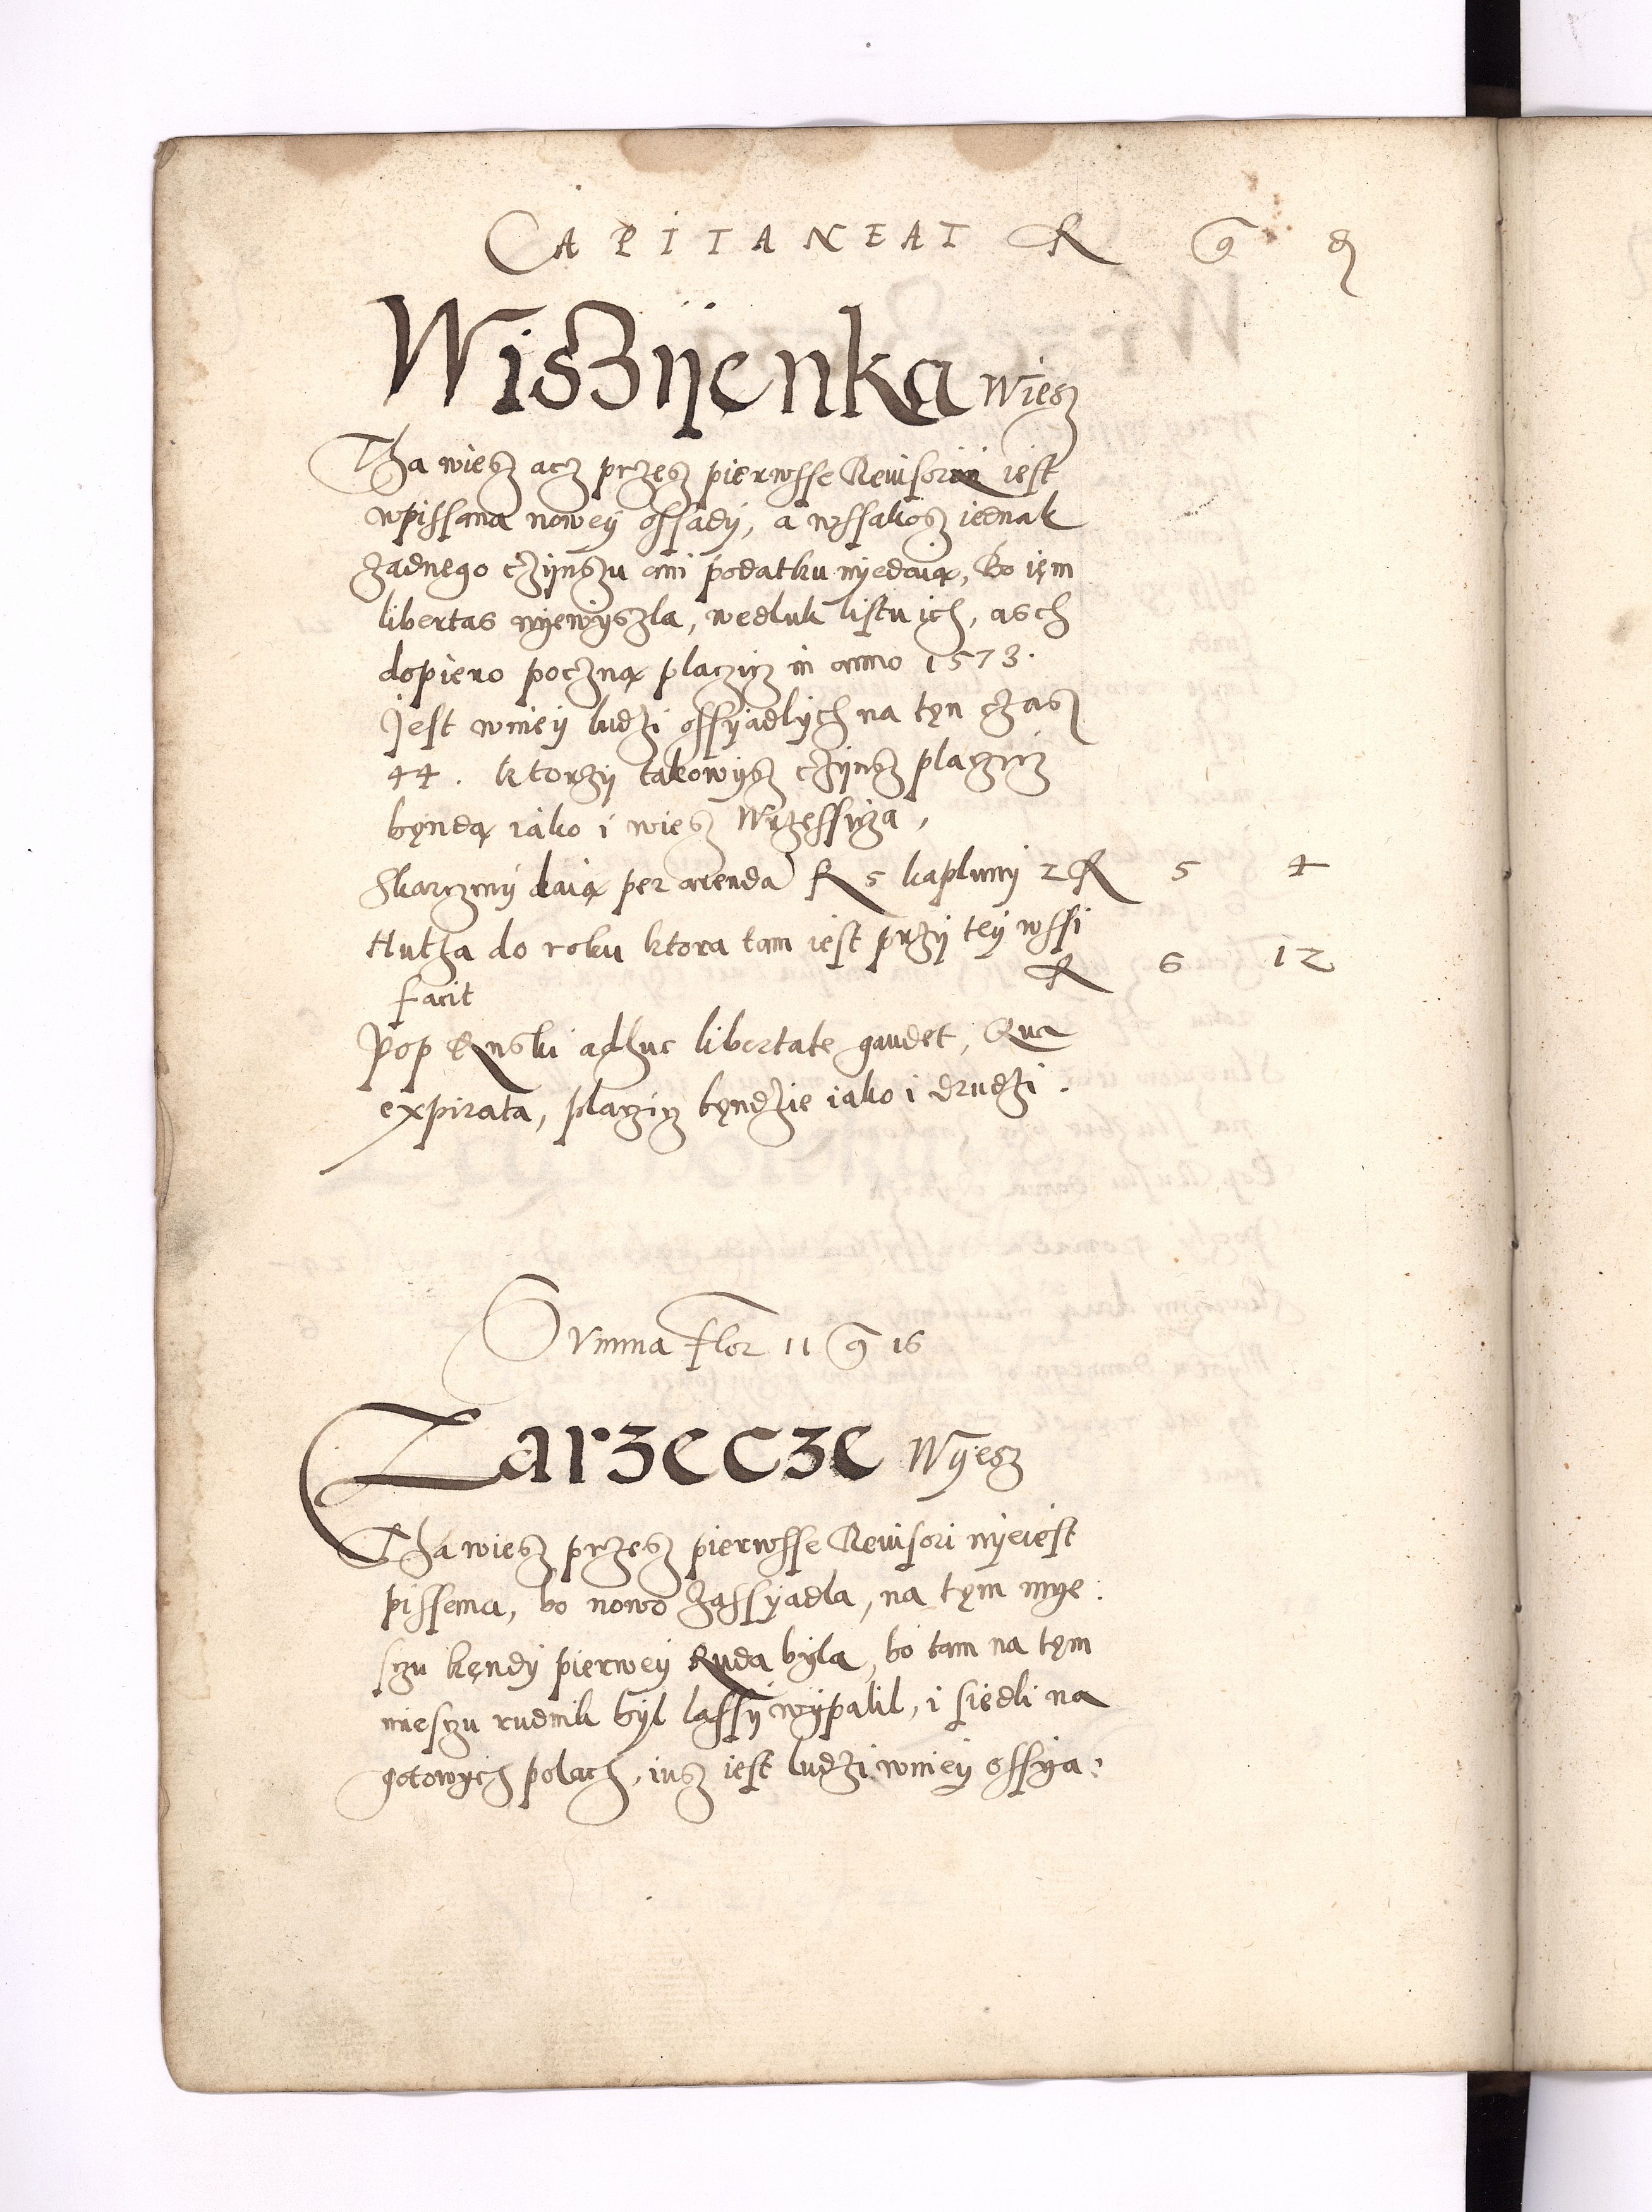 CAPITANEAT fl g d
Wiszijenka Wiesz
Tha wiesz acz przesz pierwsse Revisori iest
wpissana nowey ossady, a wssakosz iednak
żadnego czÿnszu ani podatku nyedaią, Bo iem
libertas nyewyszla, wedluk listu ich, asch
dopiero poczną placzicz in anno 1573.
Jest wniey ludzi ossyadlych na ten czasz
44. ktorzy takowysz czÿnsz placzicz
bęndą iako i wiesz Wrzessicza,
Skarczmy daią per arenda fl 5 kapluny 2 fl 5 4
Hutha do roku ktora tam iest przy tey wssi
facit fl 6 12
Pop Ruski adhuc libertate gaudet, Qua
expirata, placzicz bęndzie iako i drudzi.
Summa Flor 11 g 16
Zarzecze Wyesz
Tha wiesz przesz pierwsse Revisori nyeiest
pissana, bo nowo zassyadla, na tym mye:
sczu kendy pierwey Ruda byla, bo tam na tęm
miesczu rudnik byl lassy wypalil, i siedli na
gotowych polach, iusz iest ludzi wniey ossya: